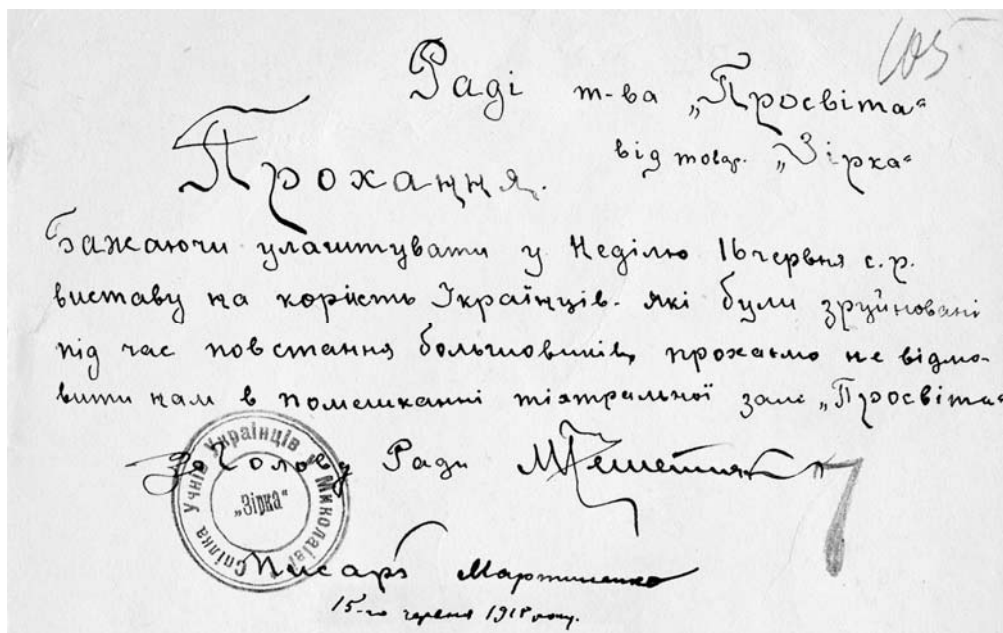 105
Раді т-ва „Просвіта“
від товар. „Зірка“
Прохання.
Бажаючи улаштувати у Неділю 16 червня с. р.
виставу на користь Українців. які були зруйновані
під час повстання большовиків, прохаємо не відмо-
вити нам в помешканні тіятральної залі „Просвіта“
За Голову Ради
Спілка Учнів Українців м. Миколаїв
„Зірка“
Писарь Мартиненко
15-го червня 1918 року.
7